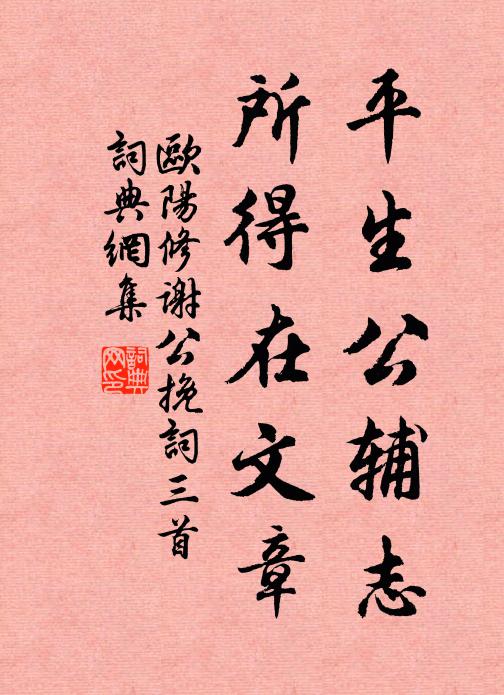 平生公辅志
所得在文章
歐陽修谢公挽詞三首
詞典網集
詞典网印